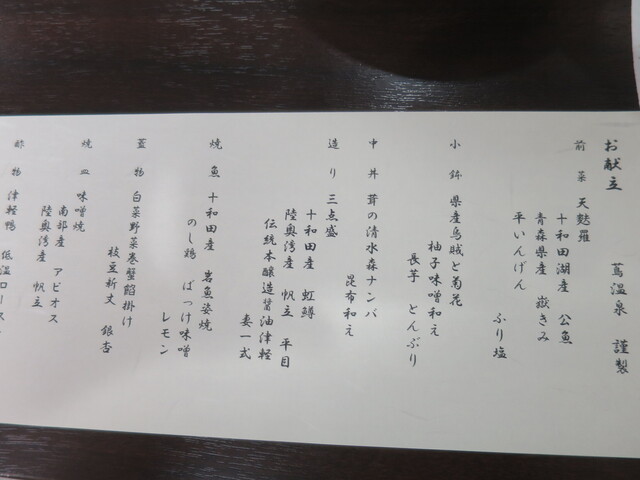 お献立 蔦温泉 謹製
前菜 天麩羅
十和田湖産 公魚
青森県産 嶽きみ
平いんげん
ふり塩
小鉢 県産烏賊と菊花
柚子味噌和え
長芋 とんぶり
中丼 茸の清水森ナンバ
昆布和え
造り 三点盛
十和田産 虹鱒
陸奥湾産 帆立 平目
伝統本醸造醤油津軽
妻一式
焼魚 十和田産 岩魚姿焼
のし鶏 ばっけ味噌
レモン
蓋物 白菜野菜巻蟹餡掛け
枝豆新丈 銀杏
焼皿 味噌焼
南部産 アピオス
陸奥湾産 帆立
酢物 津軽鴨 低温ロース